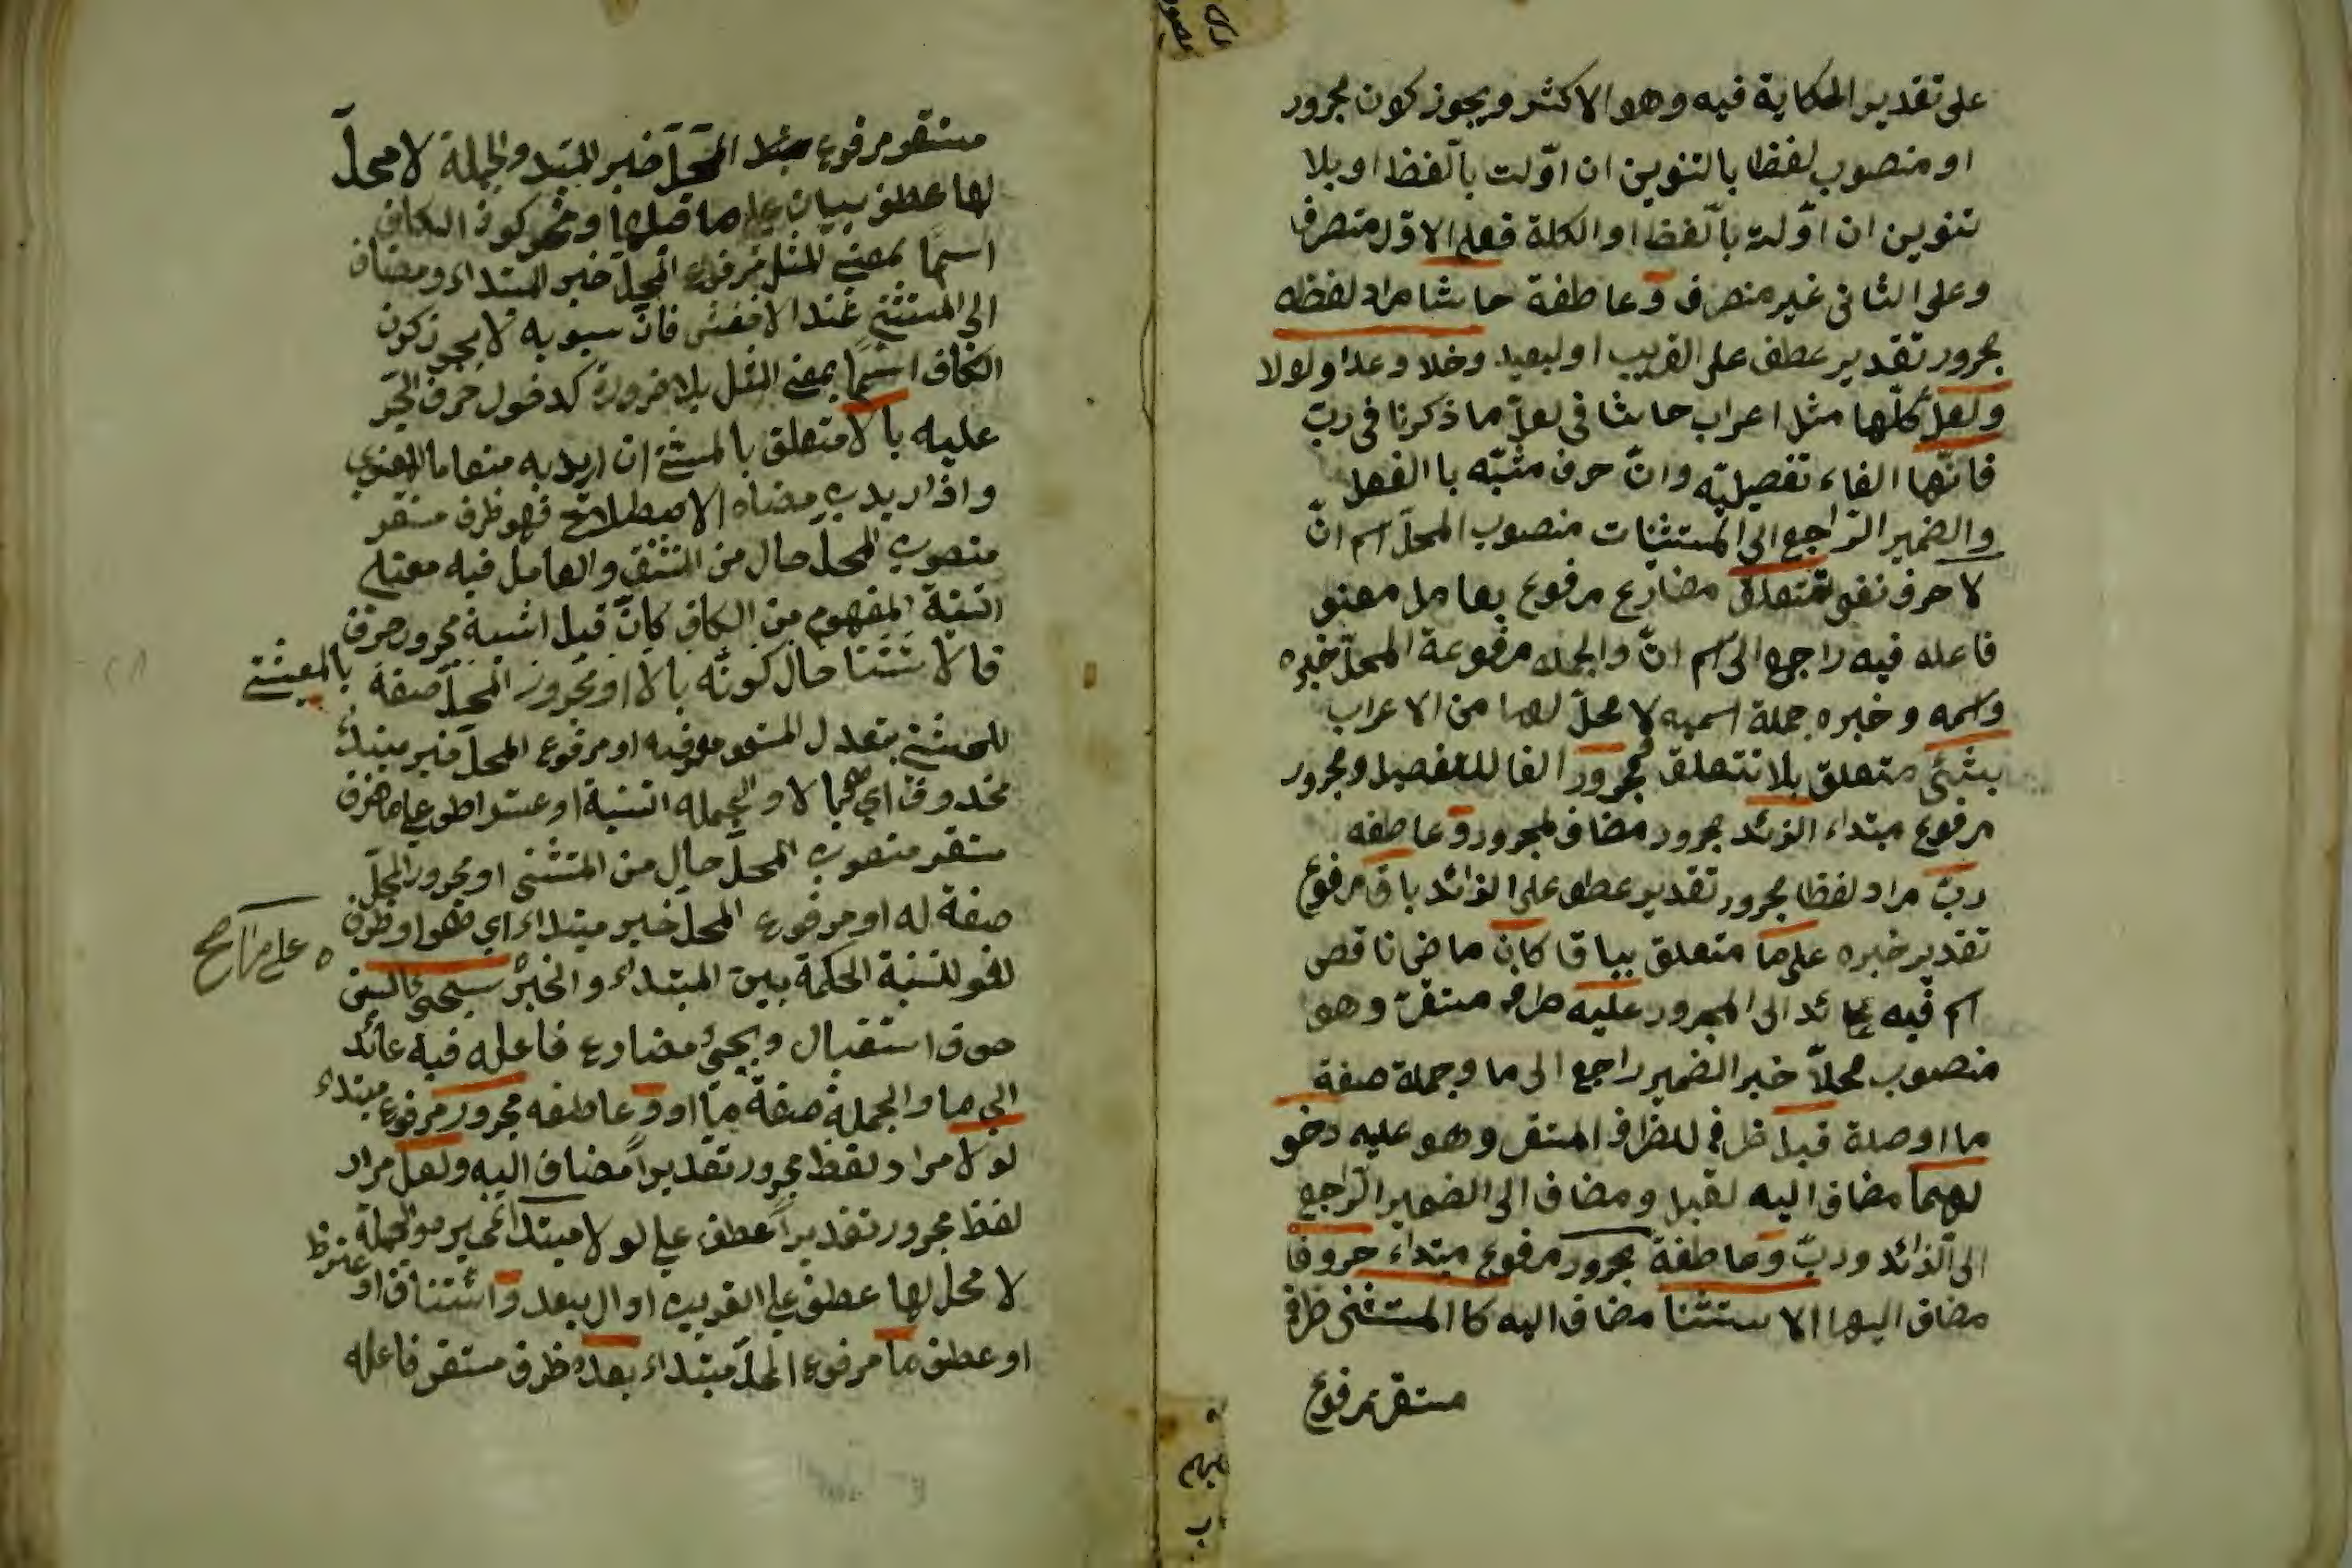 على تقدير الحكاية فيه وهو الاكثر ويجوز كون مجرور
او منصوب لفظا بالتنوين ان اوّلت باللفظ او بلا
تنوين ان اوّلت باللفظ او الكلمة فعلى الاوّل متصرف
وعلى الثانى غير منصرف وعاطفة حاشا مراد لفظه
مجرور تقدير عطف على القريب او لبعيد وخلا وعدا ولولا
ولعلّ كلّها مثل اعراب حاشا فى لعلّ ما ذكرنا فى ربّ
فانّها الفاء تفصيليّه وانّ حرف مشبّه باالفعل
والضمير الراجع الى المستثنيات منصوب المحلّ اسم انّ
لا حرف نفى تتعلق مضارع مرفوع بعامل معنوى
فاعله فيه راجع الى اسم انّ والجمله مرفوعة المحلّ خبره
واسمه وخبره جملة اسميه لا محلّ لها من الاعراب
بشئى متعلق بلا تتعلق فمجرور الفا للتفصيل ومجرور
مرفوع مبتداء الزئد مجرور مضاف لمجرور وعاطفه
ربّ مراد لفظا مجرور تقدير عطف على الزائد باق مرفوع
تقدير خبره على ما متعلق بباقا كان ماضى ناقص
اسم فيه عائد الى المجرور عليه ظرف مستقرّ وهو
منصوب محلاّ خبر الضمير راجع الى ما وجملة صفة
ما او صلة قبل ظرف للظرف المستقر وهو عليه دخو
لهما مضاف اليه لقبل ومضاف الى الضمير الراجع
الى الزائد وربّ وعاطفة مجرور مرفوع مبتداء حروفا
مضاف اليها الاستثنا مضاف اليه كا المستثنى ظرف
مستقر مرفوع
مستقر مرفوع المحلّ خبر المبتد والجملة لا محلّ
لها عطف بيان على ما قبلها ويجوز كون الكاف
اسمًا بمعنى المثل مرفوع المحلّ خبر المبتداء ومضاف
الى المستثنى عند الاخفش فانّ سيبويه لا يجوز كون
الكاف اسمًا بمعنى المثل بلا ضرورة كدخول حرف الجرّ
عليه بالا متعلق بالمستثنى ان اريد به معناها اللغوى
واذا اريد به معناه الاصطلاحى فهو ظرف مستقر
منصوب المحلّ حال من المستثنى والعامل فيه معنى
النسبة المفهوم من الكاف كانّ قبل اشبه مجرور حرف
فالاستثنا حال كونه بالا او مجرور المحلّ صفة
بالمستثنى
للمستثنى او مرفوع المحلّ خبر مبتداء
محذوف اى هما لا والجمله
مستقر منصوب المحلّ حال من المستثنى او مجرور المحلّ
صفة له او مرفوع المحلّ خبر مبتداء اى هو او ظرف
لغو للنسبة الحكمة بين المبتداء والخبر سيجئ فالسين
حرف استقبال ويجئ مضارع فاعله فيه عائد
الى ما والجملة صفة ما او وعاطفه مجرور مرفوع مبتداء
لولا مراد لفظ مجرور تقديرا مضاف اليه ولعل مراد
لفظ مجرور تقديرا عطف على لولا مبتدا والجملة
لا محل لها عطف على القريب او البعيد واستئناف او
او عطف ما مرفوع المحلّ مبتداء بعده ظرف مستقر فاعله